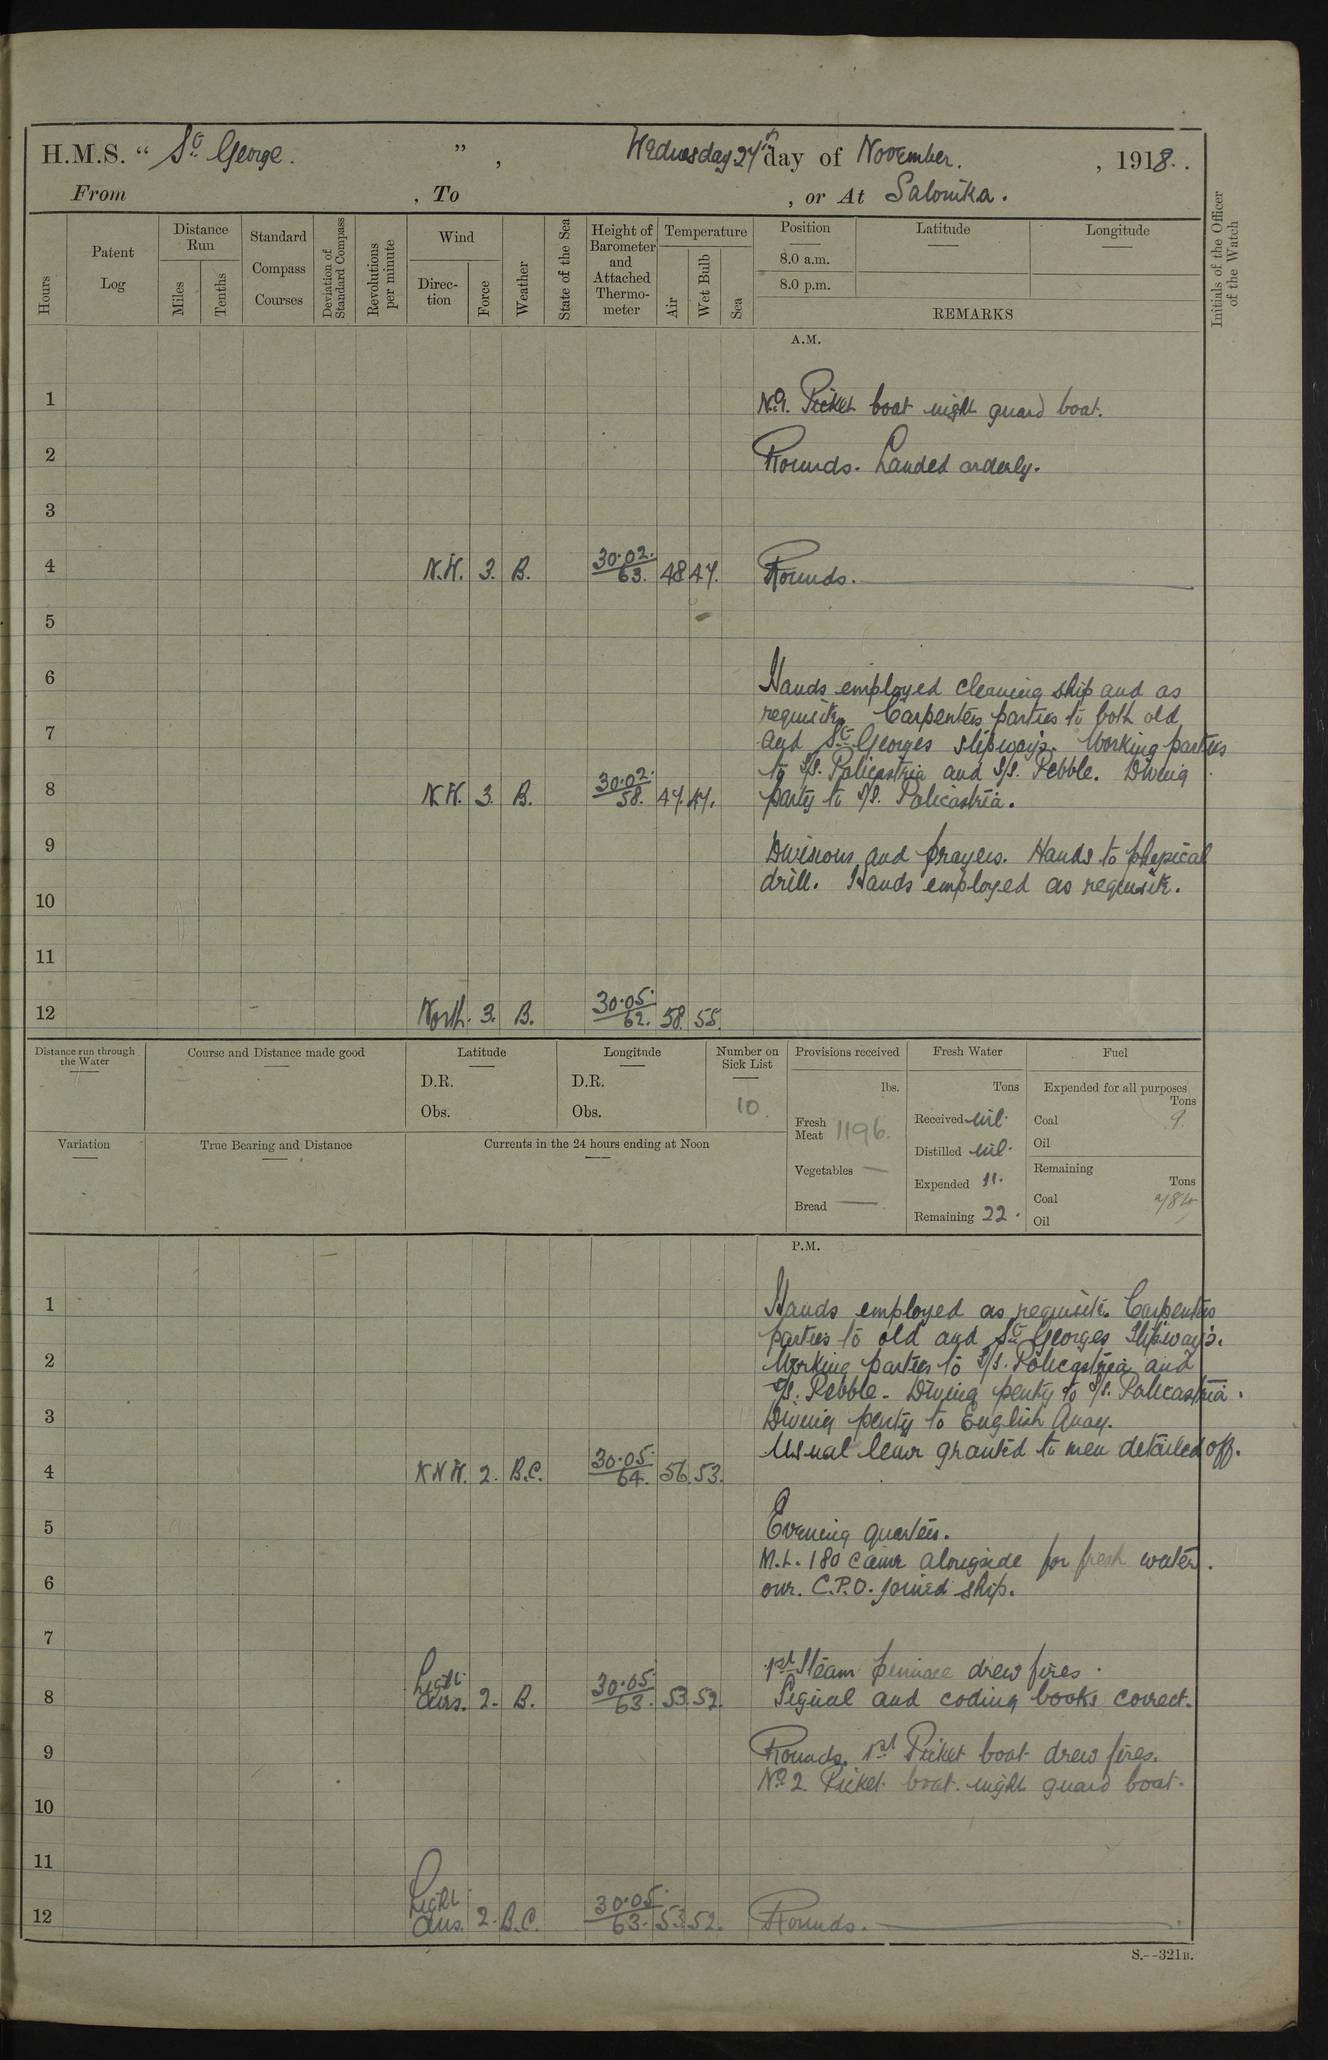 H.M.S. “ St George. ” , Wednesday 27th day of November. , 1918.
From , To , or At Salonika.
Hours
Patent Log
Distance Run
Miles
Tenths
Standard Compass Courses
Deviation of Standard Compass
Revolutions per minute
Wind
Direction
Force
Weather
State of the Sea
Height of Barometer and Attached Thermometer
Temperature
Air
Wet Bulb
Sea
Position
8.0 a.m.
8.0 p.m.
Latitude
Longitude
REMARKS
Initials of the Officer of the Watch
A.M.
1
Picket boat night guard boat.
2 Rounds. Landed orderly.
3
4 N.W. 3. B. 30.02. 63. 48 47. Rounds.
5
6 Hands employed cleaning ship and as
requisite. Carpenters parties to both old
7 and St Georges slipways. Working parties
to S/S. Policastria and S/S. Pebble. Diving
8 N.W. 3. B. 30.02. 58. 47. 47. party to S/S. Policastria.
9 Divisions and prayers. Hands to physical
drill. Hands employed as requisite.
10
11
12 North. 3. B. 30.05. 62. 58. 55.
Distance run through the Water
Course and Distance made good
Latitude
D.R.
Obs.
Longitude
D.R.
Obs.
Number on Sick List
10.
Provisions received
lbs.
Fresh Meat 1196.
Vegetables —
Bread —
Fresh Water
Tons
Received nil.
Distilled nil.
Expended 11.
Remaining 22.
Fuel
Expended for all purposes
Tons
Coal 9.
Oil
Remaining
Tons
Coal 784
Oil
Variation
True Bearing and Distance
Currents in the 24 hours ending at Noon
P.M.
1 Hands employed as requisite. Carpenters
parties to old and St Georges Slipways.
2 Working parties to S/S. Policastria and
S/S. Pebble. Diving party to S/S. Policastria.
3 Diving party to English Quay.
Usual leave granted to men detailed off.
4 NNW. 2. B.C. 30.05. 64. 56. 53.
5 Evening quarters.
M.L. 180 came alongside for fresh water.
6 one. C.P.O. joined ship.
7
1st Steam pinnace drew fires.
8 Light airs. 2. B. 30.05. 63. 53. 52. Signal and coding books correct.
9 Rounds. 1st Picket boat drew fires.
No 2 Picket boat night guard boat.
10
11
12 Light airs. 2. B.C. 30.05. 63. 53 52. Rounds.
S.--321B.